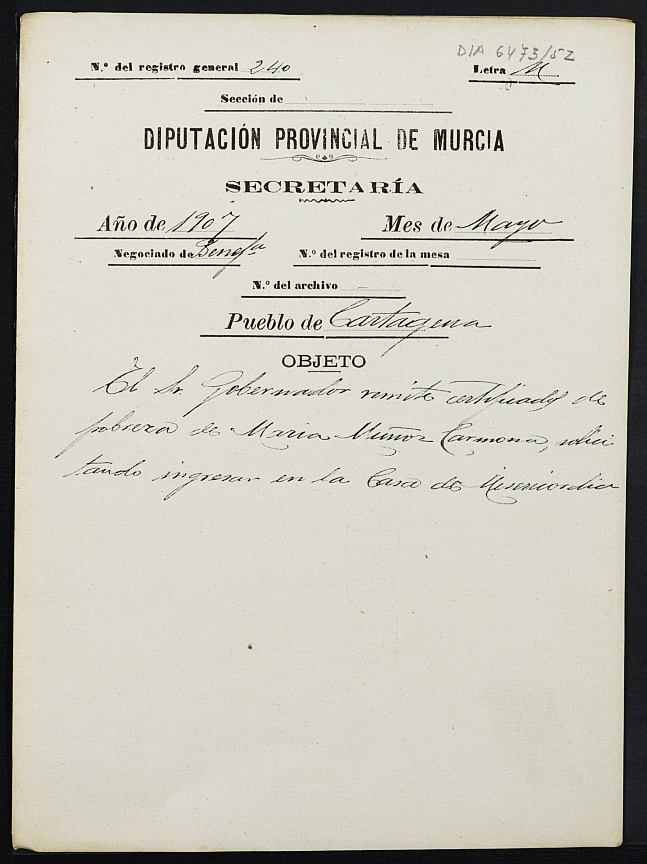 DIA 6473/52
N.º del registro general 240 Letra M
Sección de
DIPUTACIÓN PROVINCIAL DE MURCIA
SECRETARÍA
Año de 1907 Mes de Mayo
Negociado de Benefª N.º del registro de la mesa
N.º del archivo
Pueblo de Cartagena
OBJETO
El Sr. Gobernador remite certificados de
pobreza de Maria Muñoz Carmona, solici
tando ingresar en la Casa de Misericordia